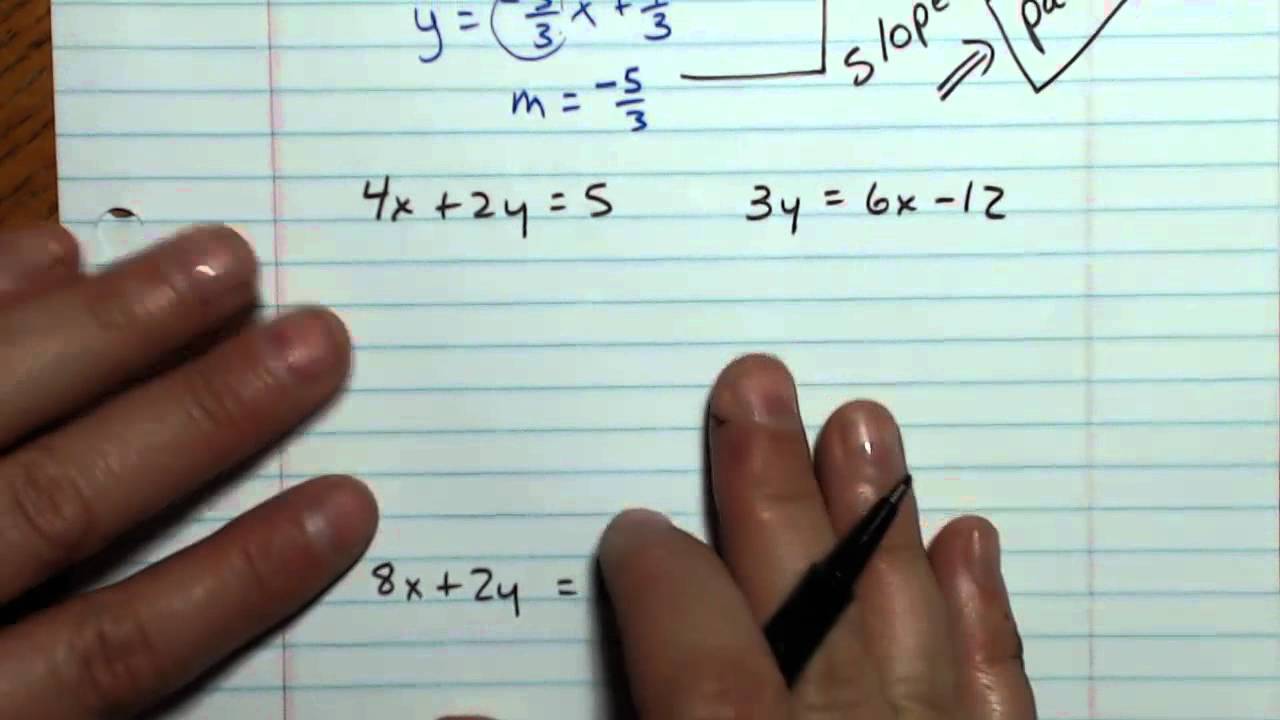 y = -5/3 x + 1/3
m = -5/3
slope
4x + 2y = 5
3y = 6x - 12
8x + 2y =